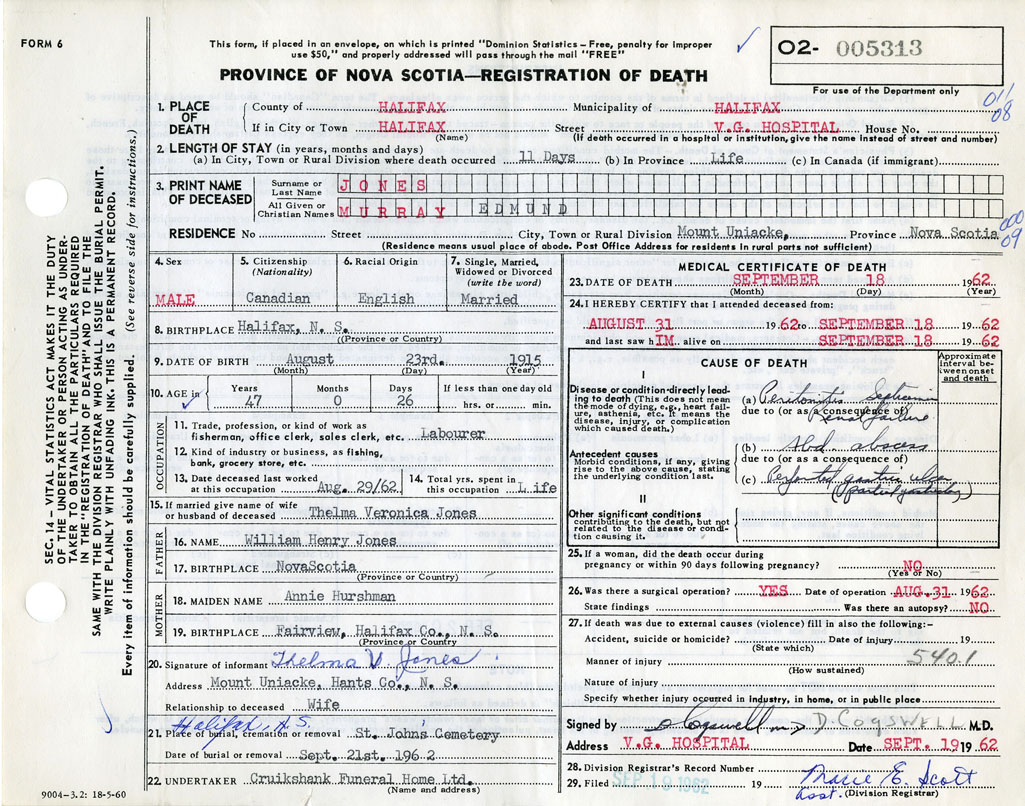 FORM 6
This form, if placed in an envelope, on which is printed "Dominion Statistics – Free, penalty for improper
use $50," and properly addressed will pass through the mail "FREE"
O2- 005313
PROVINCE OF NOVA SCOTIA—REGISTRATION OF DEATH
For use of the Department only
011
08
1. PLACE OF DEATH
County of HALIFAX Municipality of HALIFAX
If in City or Town HALIFAX Street V.G. HOSPITAL House No.
(Name) (If death occurred in a hospital or institution, give the name instead of street and number)
2. LENGTH OF STAY (in years, months and days)
(a) In City, Town or Rural Division where death occurred 11 Days (b) In Province Life (c) In Canada (if immigrant)
3. PRINT NAME OF DECEASED
Surname or Last Name JONES
All Given or Christian Names MURRAY EDMUND
000
09
RESIDENCE No Street City, Town or Rural Division Mount Uniacke, Province Nova Scotia
(Residence means usual place of abode. Post Office Address for residents in rural parts not sufficient)
SEC. 14 – VITAL STATISTICS ACT MAKES IT THE DUTY
OF THE UNDERTAKER OR PERSON ACTING AS UNDER-
TAKER TO OBTAIN ALL THE PARTICULARS REQUIRED
IN THE "REGISTRATION OF DEATH" AND TO FILE THE
SAME WITH THE DIVISION REGISTRAR WHO SHALL ISSUE THE BURIAL PERMIT.
WRITE PLAINLY WITH UNFADING INK-THIS IS A PERMANENT RECORD.
Every item of information should be carefully supplied. (See reverse side for instructions.)
4. Sex
MALE
5. Citizenship
(Nationality)
Canadian
6. Racial Origin
English
7. Single, Married,
Widowed or Divorced
(write the word)
Married
8. BIRTHPLACE Halifax, N. S.
(Province or Country)
9. DATE OF BIRTH August 23rd. 1915
(Month) (Day) (Year)
10. AGE in Years Months Days If less than one day old
47 0 26 hrs. or min.
OCCUPATION
11. Trade, profession, or kind of work as
fisherman, office clerk, sales clerk, etc. Labourer
12. Kind of industry or business, as fishing,
bank, grocery store, etc.
13. Date deceased last worked
at this occupation Aug. 29/62
14. Total yrs. spent in
this occupation Life
15. If married give name of wife
or husband of deceased Thelma Veronica Jones
FATHER
16. NAME William Henry Jones
17. BIRTHPLACE NovaScotia
(Province or Country)
MOTHER
18. MAIDEN NAME Annie Hurshman
19. BIRTHPLACE Fairview, Halifax Co., N. S.
(Province or Country
20. Signature of informant Thelma V. Jones
Address Mount Uniacke, Hants Co., N. S.
Relationship to deceased Wife
Halifax, N.S.
21. Place of burial, cremation or removal St. Johns Cemetery
Date of burial or removal Sept. 21st. 196.2
22. UNDERTAKER Cruikshank Funeral Home Ltd.
(Name and address)
9004–3.2: 18-5-60
MEDICAL CERTIFICATE OF DEATH
23. DATE OF DEATH SEPTEMBER 18 1962
(Month) (Day) (Year)
24. I HEREBY CERTIFY that I attended deceased from:
AUGUST 31 1962 to SEPTEMBER 18 1962
and last saw hIM alive on SEPTEMBER 18 1962
CAUSE OF DEATH
Approximate
interval be-
tween onset
and death
I
Disease or condition directly lead-
ing to death (This does not mean
the mode of dying, e.g., heart fail-
ure, asthenia, etc. It means the
disease, injury, or complication
which caused death.)
(a) Peritonitis Septicemia
due to (or as a consequence of)
Renal failure
Antecedent causes
Morbid conditions, if any, giving
rise to the above cause, stating
the underlying condition last.
(b) Abd. abscess
due to (or as a consequence of)
(c) Perforated gastric ulcer
II
Other significant conditions
contributing to the death, but not
related to the disease or condi-
tion causing it.
25. If a woman, did the death occur during
pregnancy or within 90 days following pregnancy? NO
(Yes or No)
26. Was there a surgical operation? YES Date of operation AUG.31 1962
State findings Was there an autopsy? NO
27. If death was due to external causes (violence) fill in also the following:–
Accident, suicide or homicide? Date of injury 19
(State which)
Manner of injury 540.1
(How sustained)
Nature of injury
Specify whether injury occurred in industry, in home, or in public place
Signed by D Cogswell M.D. D. COGSWELL M.D.
Address V.G. HOSPITAL Date SEPT. 19 1962
28. Division Registrar's Record Number
29. Filed SEP 19 1962 19 Marie E. Scott
asst. (Division Registrar)